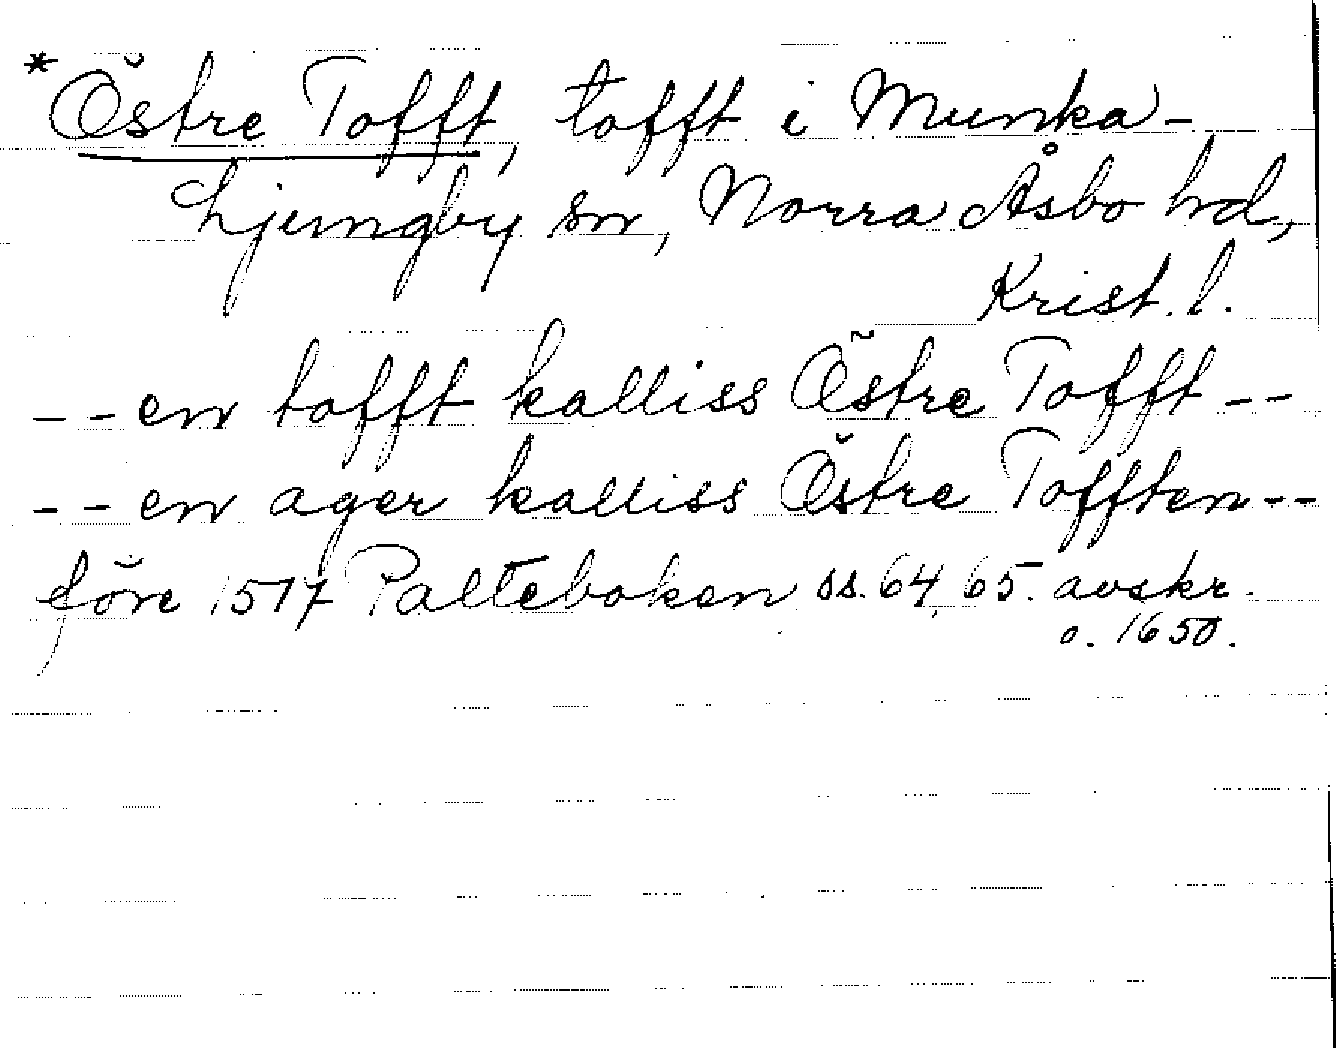 *Östre Tofft, tofft i Munka-
Ljungby sn, Norra Åsbo hd,
Krist. l.
-- en tofft kalliss Östre Tofft --
-- en ager kalliss Östre Tofften --
före 1517 Palteboken ss. 64, 65. avskr.
o. 1650.